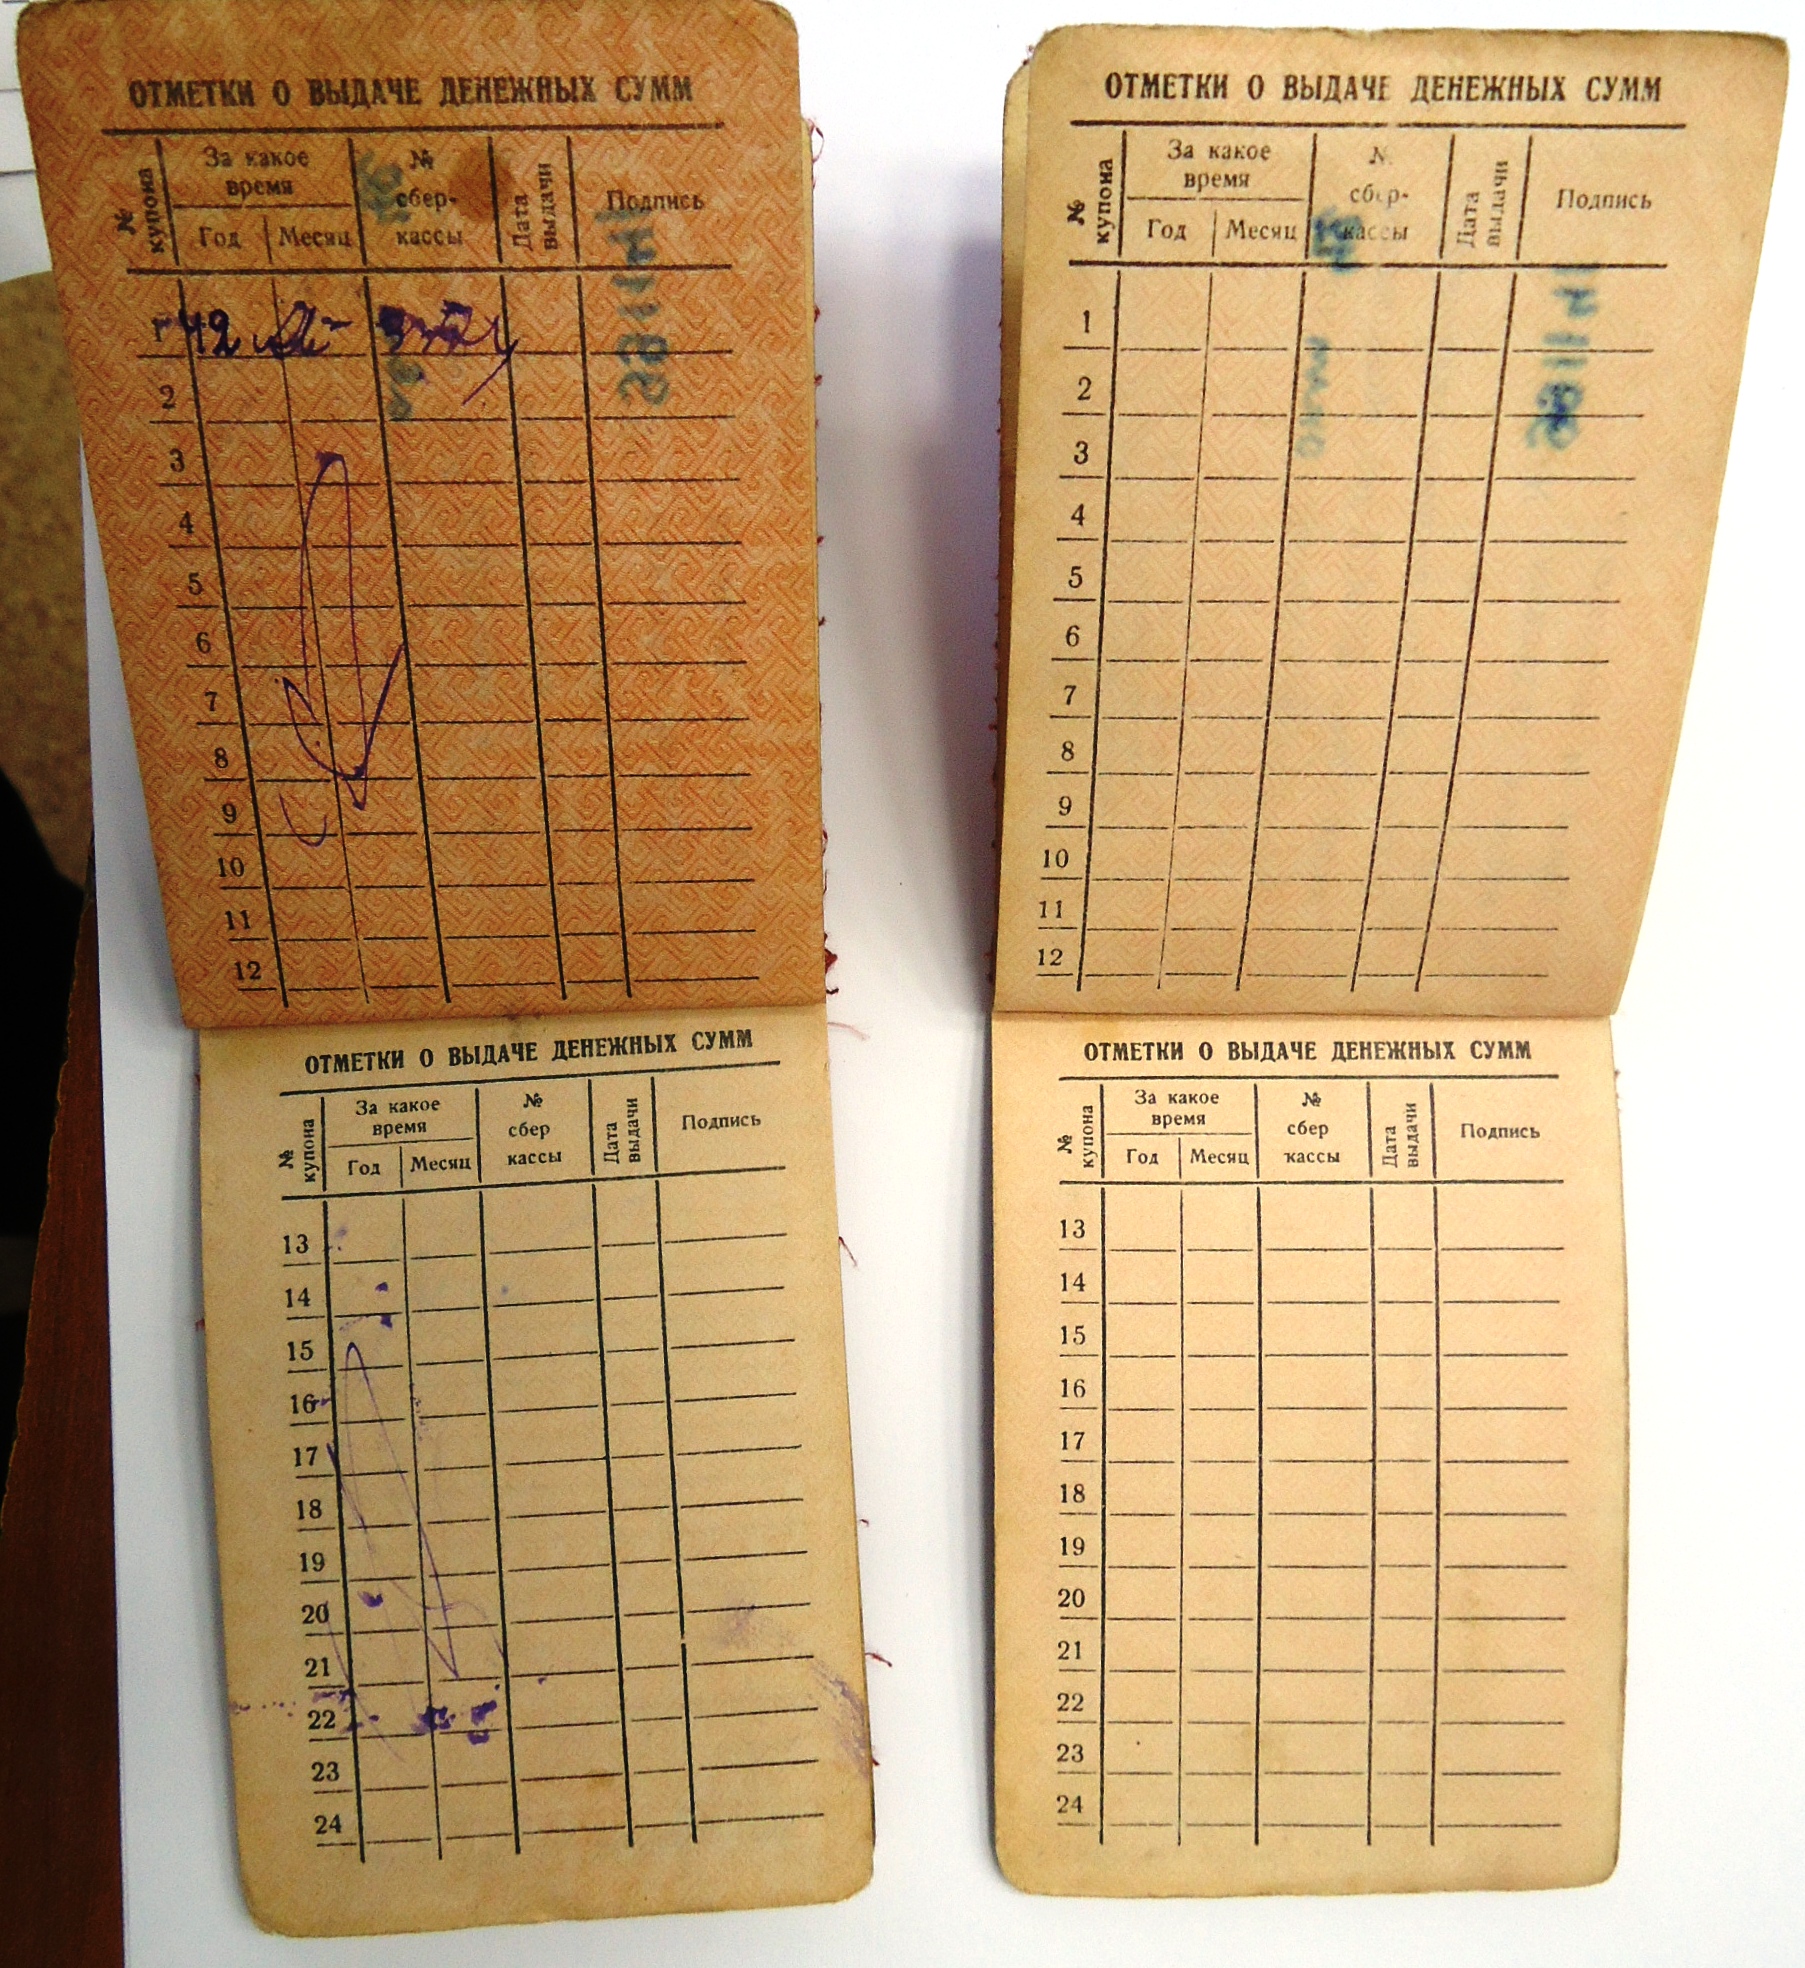 ОТМЕТКИ О ВЫДАЧЕ ДЕНЕЖНЫХ СУММ
№ купона
За какое время
Год
Месяц
№ сбер-кассы
Дата выдачи
Подпись
1 42
2
3
4
5
6
7
8
9
10
11
12
ОТМЕТКИ О ВЫДАЧЕ ДЕНЕЖНЫХ СУММ
№ купона
За какое время
Год
Месяц
№ сбер кассы
Дата выдачи
Подпись
13
14
15
16
17
18
19
20
21
22
23
24
ОТМЕТКИ О ВЫДАЧЕ ДЕНЕЖНЫХ СУММ
№ купона
За какое время
Год
Месяц
№ сбер-кассы
Дата выдачи
Подпись
1
2
3
4
5
6
7
8
9
10
11
12
ОТМЕТКИ О ВЫДАЧЕ ДЕНЕЖНЫХ СУММ
№ купона
За какое время
Год
Месяц
№ сбер кассы
Дата выдачи
Подпись
13
14
15
16
17
18
19
20
21
22
23
24